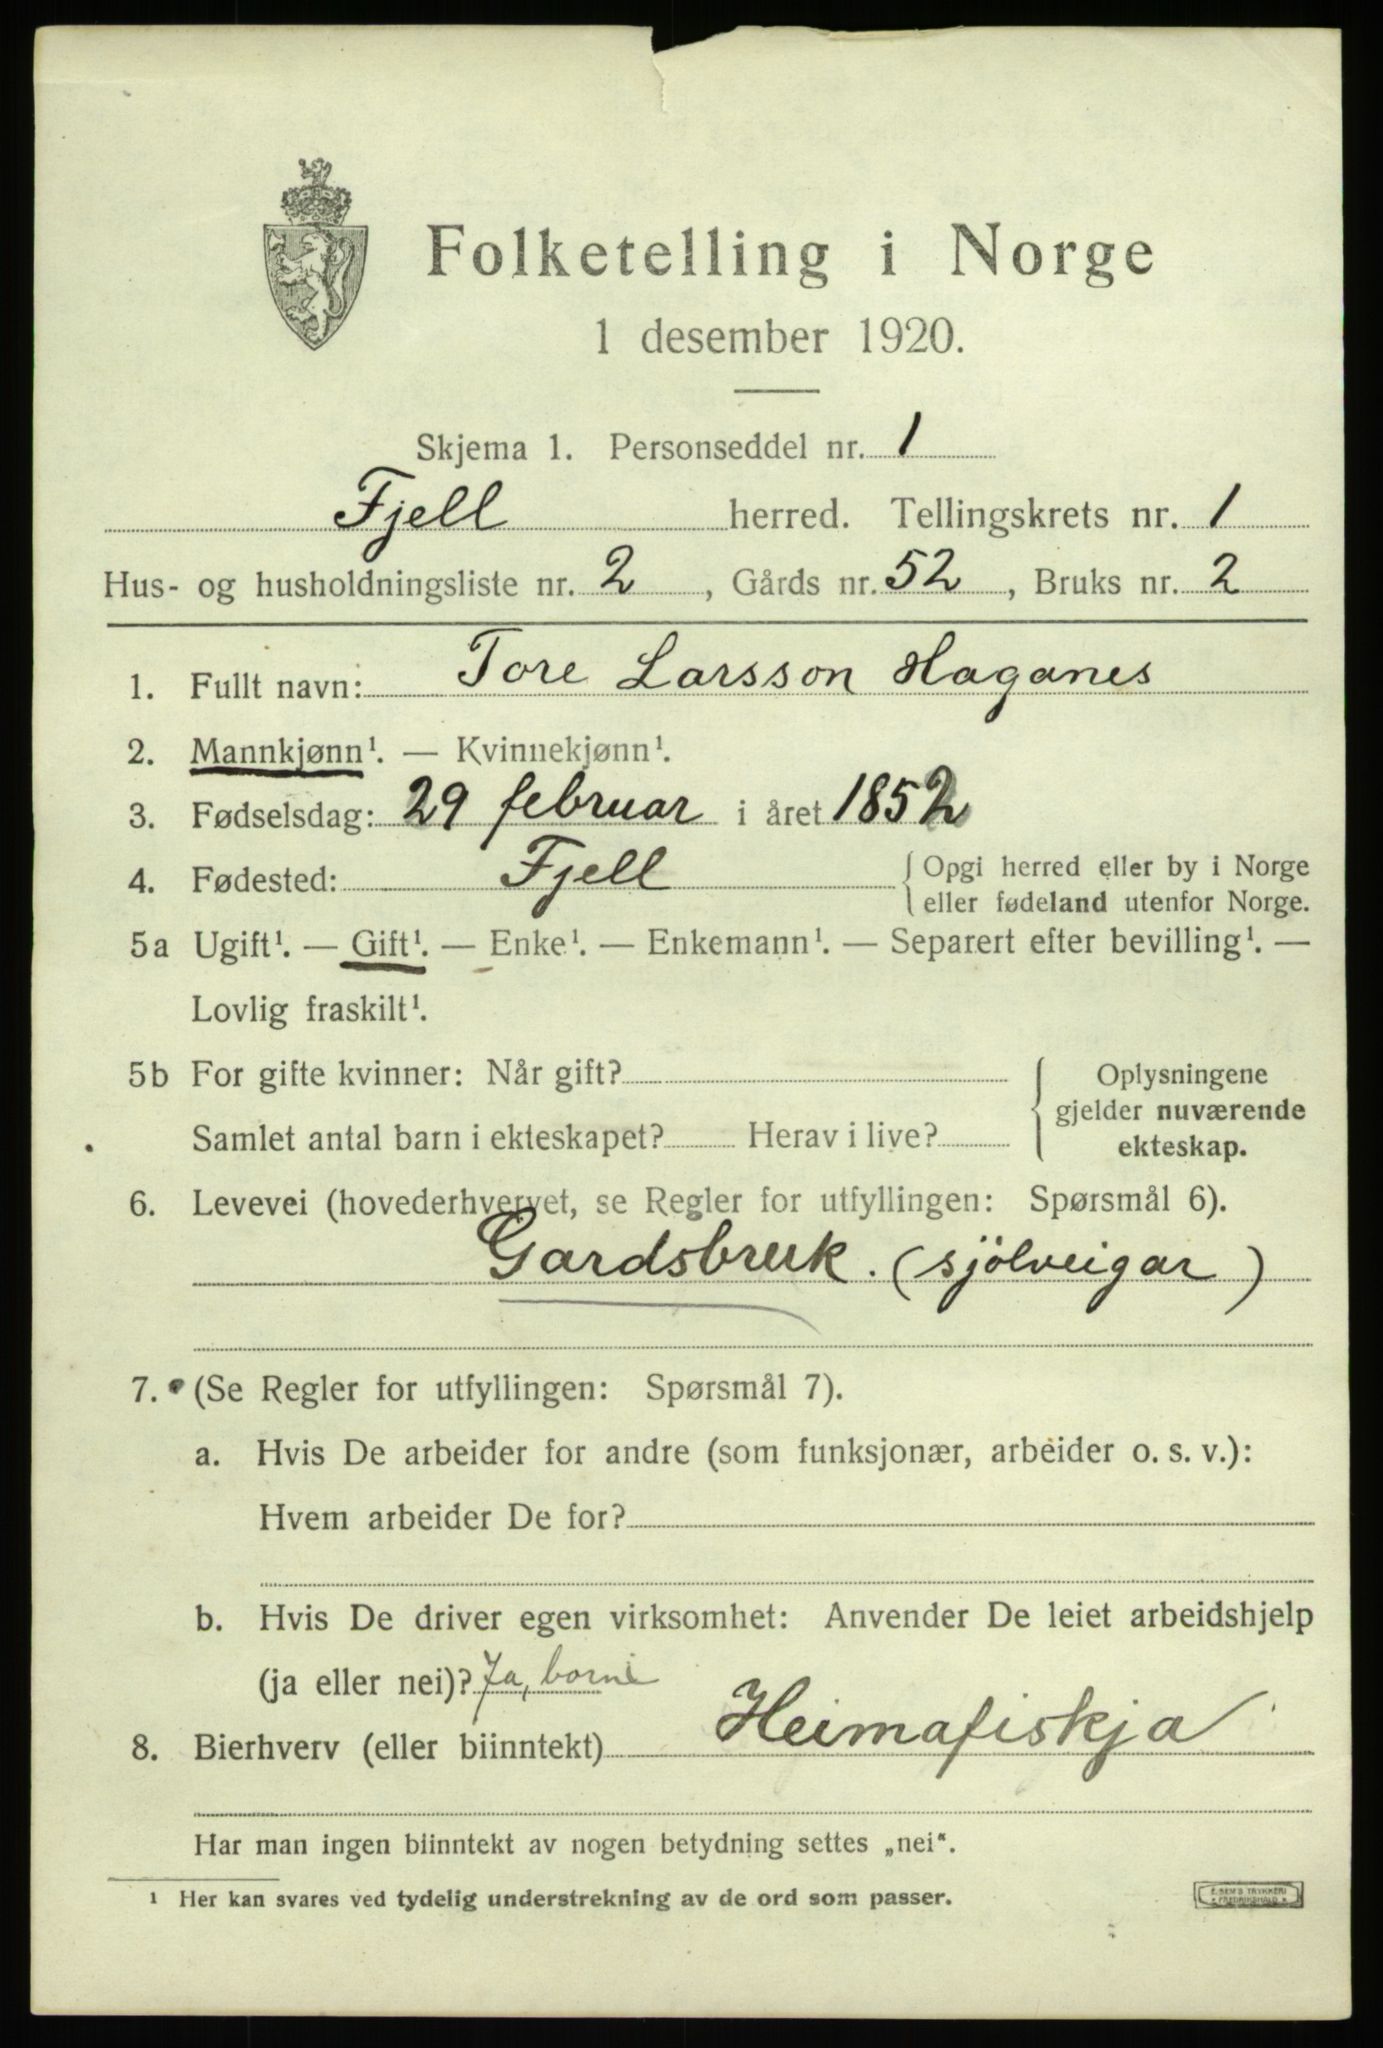 Folketelling i Norge
1 desember 1920.
Skjema 1. Personseddel nr. 1
Fjell herred. Tellingskrets nr. 1
Hus- og husholdningsliste nr. 2, Gårds nr. 52, Bruks nr. 2
1. Fullt navn: Tore Larsson Haganes
2. Mannkjønn¹. — Kvinnekjønn¹.
3. Fødselsdag: 29 februar i året 1852
4. Fødested: Fjell { Opgi herred eller by i Norge
eller fødeland utenfor Norge.
5a Ugift¹. — Gift¹. — Enke¹. — Enkemann¹. — Separert efter bevilling¹. —
Lovlig fraskilt¹.
5b For gifte kvinner: Når gift? { Oplysningene
gjelder nuværende
Samlet antal barn i ekteskapet? Herav i live? ekteskap.
6. Levevei (hovederhvervet, se Regler for utfyllingen: Spørsmål 6).
Gardsbruk. (sjölveigar)
7. (Se Regler for utfyllingen: Spørsmål 7).
a. Hvis De arbeider for andre (som funksjonær, arbeider o. s. v.):
Hvem arbeider De for?
b. Hvis De driver egen virksomhet: Anvender De leiet arbeidshjelp
(ja eller nei)? Ja, borni
8. Bierhverv (eller biinntekt) Heimafiskja
Har man ingen biinntekt av nogen betydning settes „nei“.
¹ Her kan svares ved tydelig understrekning av de ord som passer.
E. SEM'S TRYKKERI
FREDRIKSHALD